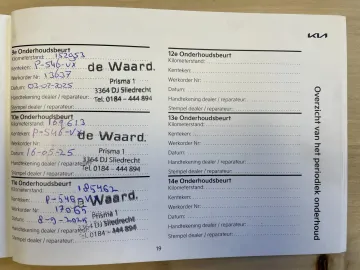 9e Onderhoudsbeurt
Kilometerstand: 152053
Kenteken: P-546-VX
Werkorder Nr: 13637
Datum: 03-07-2025
Handtekening dealer / reparateur:
Stempel dealer / reparateur:
de Waard.
Prisma 1
3364 DJ Sliedrecht
Tel. 0184 - 444 894
10e Onderhoudsbeurt
Kilometerstand: 169613
Kenteken: P-546-VX
Werkorder Nr:
Datum: 16-05-25
Handtekening dealer / reparateur:
Stempel dealer / reparateur:
de Waard.
Prisma 1
3364 DJ Sliedrecht
Tel. 0184 - 444 894
11e Onderhoudsbeurt
Kilometerstand: 185462
Kenteken: P-546-
Werkorder Nr: 17065
Datum: 8-9-2025
Handtekening dealer / reparateur:
Stempel dealer / reparateur:
Waard.
Prisma 1
3364 DJ Sliedrecht
0184 - 444 894
12e Onderhoudsbeurt
Kilometerstand:
Kenteken:
Werkorder Nr:
Datum:
Handtekening dealer / reparateur:
Stempel dealer / reparateur:
13e Onderhoudsbeurt
Kilometerstand:
Kenteken:
Werkorder Nr:
Datum:
Handtekening dealer / reparateur:
Stempel dealer / reparateur:
14e Onderhoudsbeurt
Kilometerstand:
Kenteken:
Werkorder Nr:
Datum:
Handtekening dealer / reparateur:
Stempel dealer / reparateur:
19
KIA
Overzicht van het periodiek onderhoud